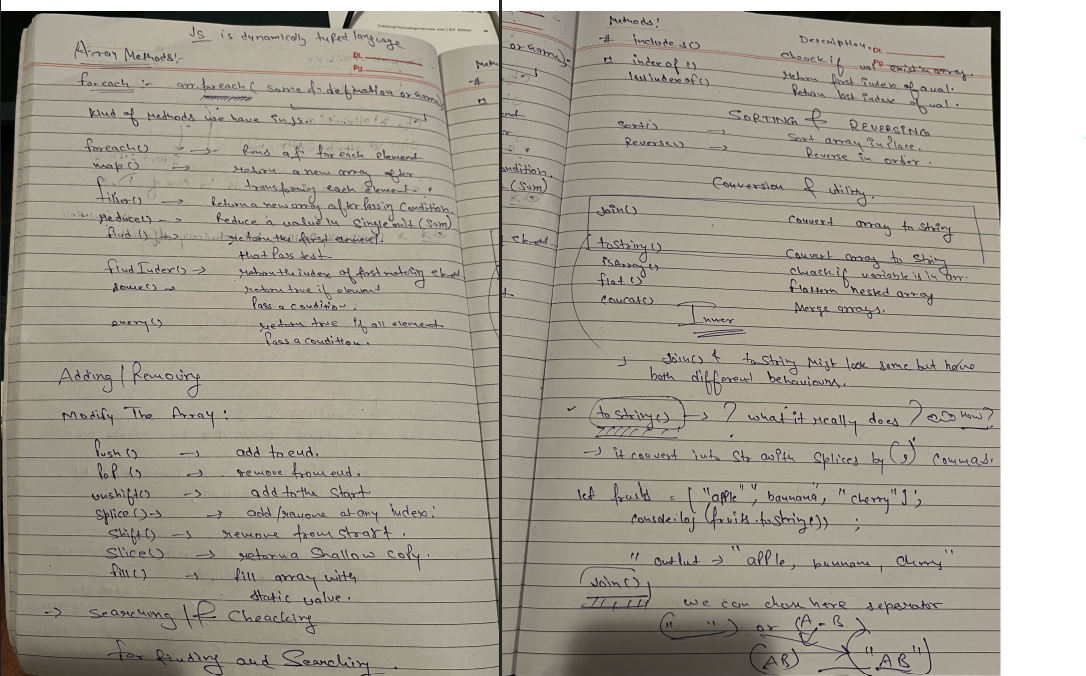 JS is dynamically typed language
Array Methods:-
Dt.
Pg.
foreach :- arr.foreach( some fn defination or name)
kind of methods we have in js.
foreach() → Runs a fn for each element
map() → return a new array after
transforming each element.
filter() → Return a new array after Passin Condition.
reduce() → Reduce a value in Single unit (Sum)
find() → return the first element.
that Pass test
findIndex() → return the index of first matching
some() → return true if element
Pass a condition.
every() return true if all element
Pass a condition.
Adding / Removing
Modify The Array :
Push() → add to end.
PoP () → remove from end.
unshift() → add to the start
splice() → → add/remove at any index:
Shift() → remove from strart.
Slice() → return a Shallow copy.
fill() → fill array with
static value.
→ Searching / & Cheacking
for finding and Searching.
Methods!
Description:- Dt.
Pg.
# includes() cheack if val exist in array.
indexof() return first index of a val.
lastindexof() Return last index of val.
SORTING & REVERSING
Sort() → Sort array in Place.
Reverse() → Reverse in order.
Conversion & utility.
Join() Convert array to string
toString() Convert array to string
isArray() cheack if variable is in arr.
flat() flattern nested array
concat() Merge arrays.
Inner
Join() & toString Might look same but have
both different behaviours.
toString() → ? what it really does ? How?
→ it convert into Str with Splices by (,) Commas.
let fruits = ["apple", bannana", "cherry"];
console.log (fruits.tostring());
" output → "apple, bannana, cherry"
Join()
we can chose here separator
(" ") or (A-B)
(AB) ("AB")